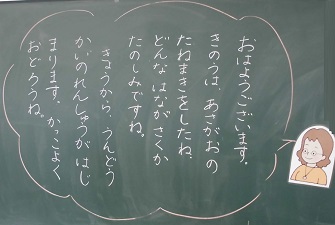 おはようございます。
きのうは、あさがおの
たねまきをしたね。
どんな はながさくか
たのしみですね。
きょうから、うんどう
かいのれんしゅうがはじ
まります。かっこよく
おどろうね。